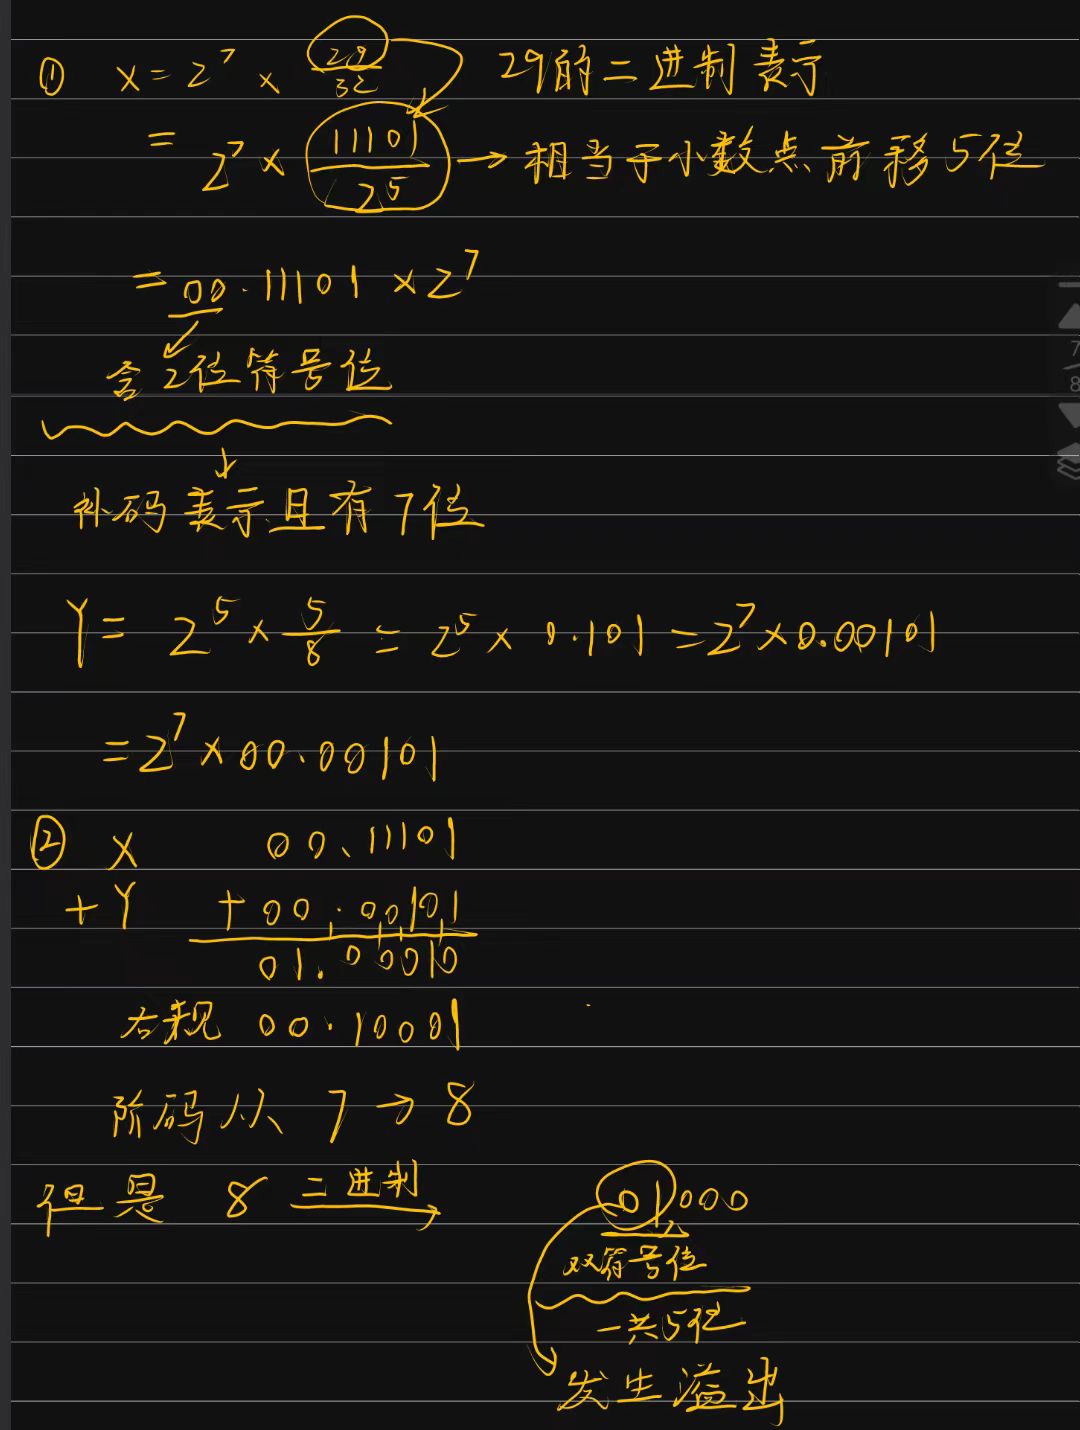 ① X = 2^7 × 29/32 29的二进制表示
= 2^7 × 11101/2^5 → 相当于小数点前移5位
= 00.11101 × 2^7
含2位符号位
补码表示且有7位
Y = 2^5 × 5/8 = 2^5 × 0.101 = 2^7 × 0.00101
= 2^7 × 00.00101
② X 00.11101
+ Y + 00.00101
01.00010
右规 00.10001
阶码从 7 → 8
但是 8 二进制→ 01,000
双符号位
一共5位
发生溢出
7
8